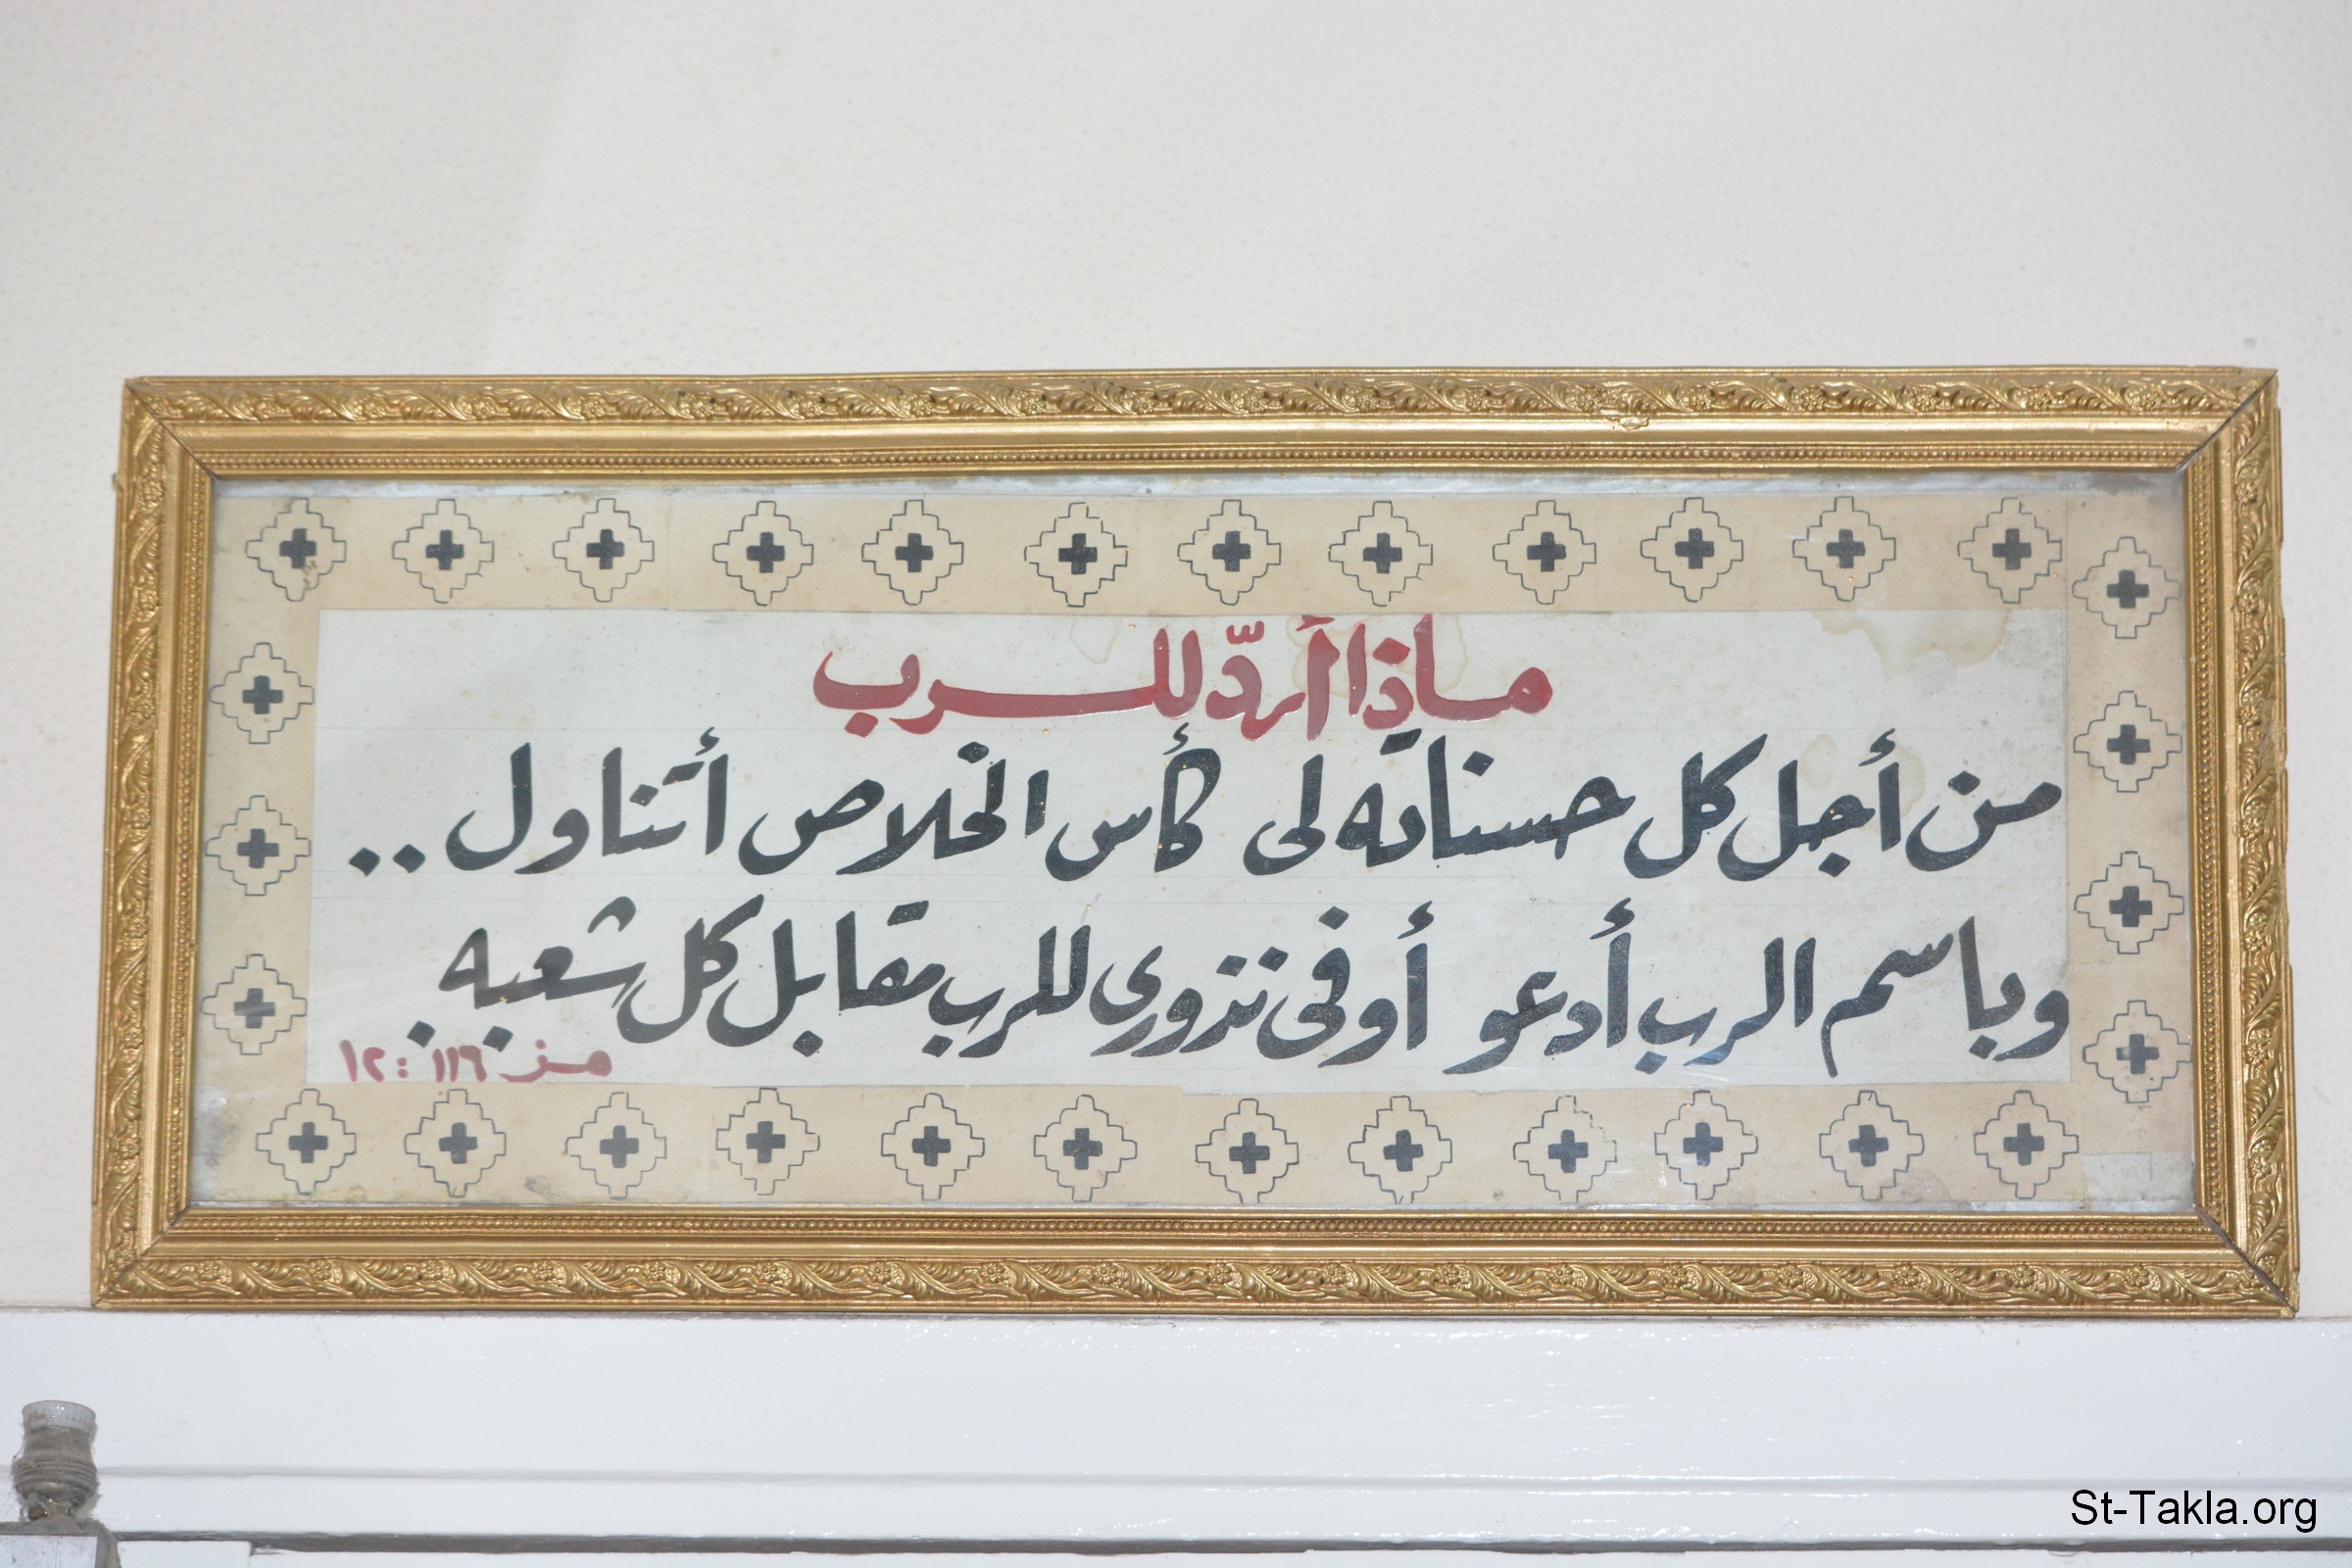 ماذا أردّ للرب
من أجل كل حسناته لى كأس الخلاص أتناول ..
وباسم الرب أدعو أوفى نذورى للرب مقابل كل شعبه .
مز ١١٦ : ١٢
St-Takla.org